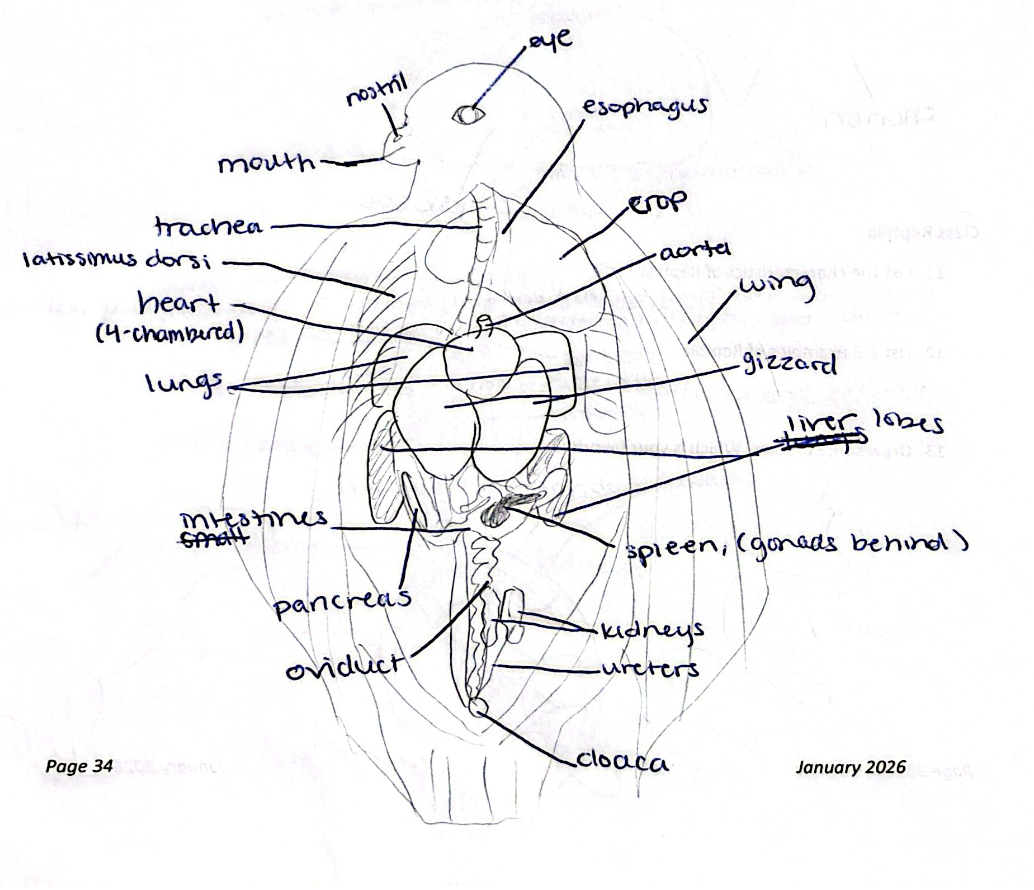 eye
nostril
esophagus
mouth
crop
trachea
aorta
latissimus dorsi
wing
heart
(4-chambered)
gizzard
lungs
liver lobes
intestines
small
spleen, (gonads behind)
pancreas
kidneys
oviduct
ureters
cloaca
Page 34
January 2026
Class Reptilia